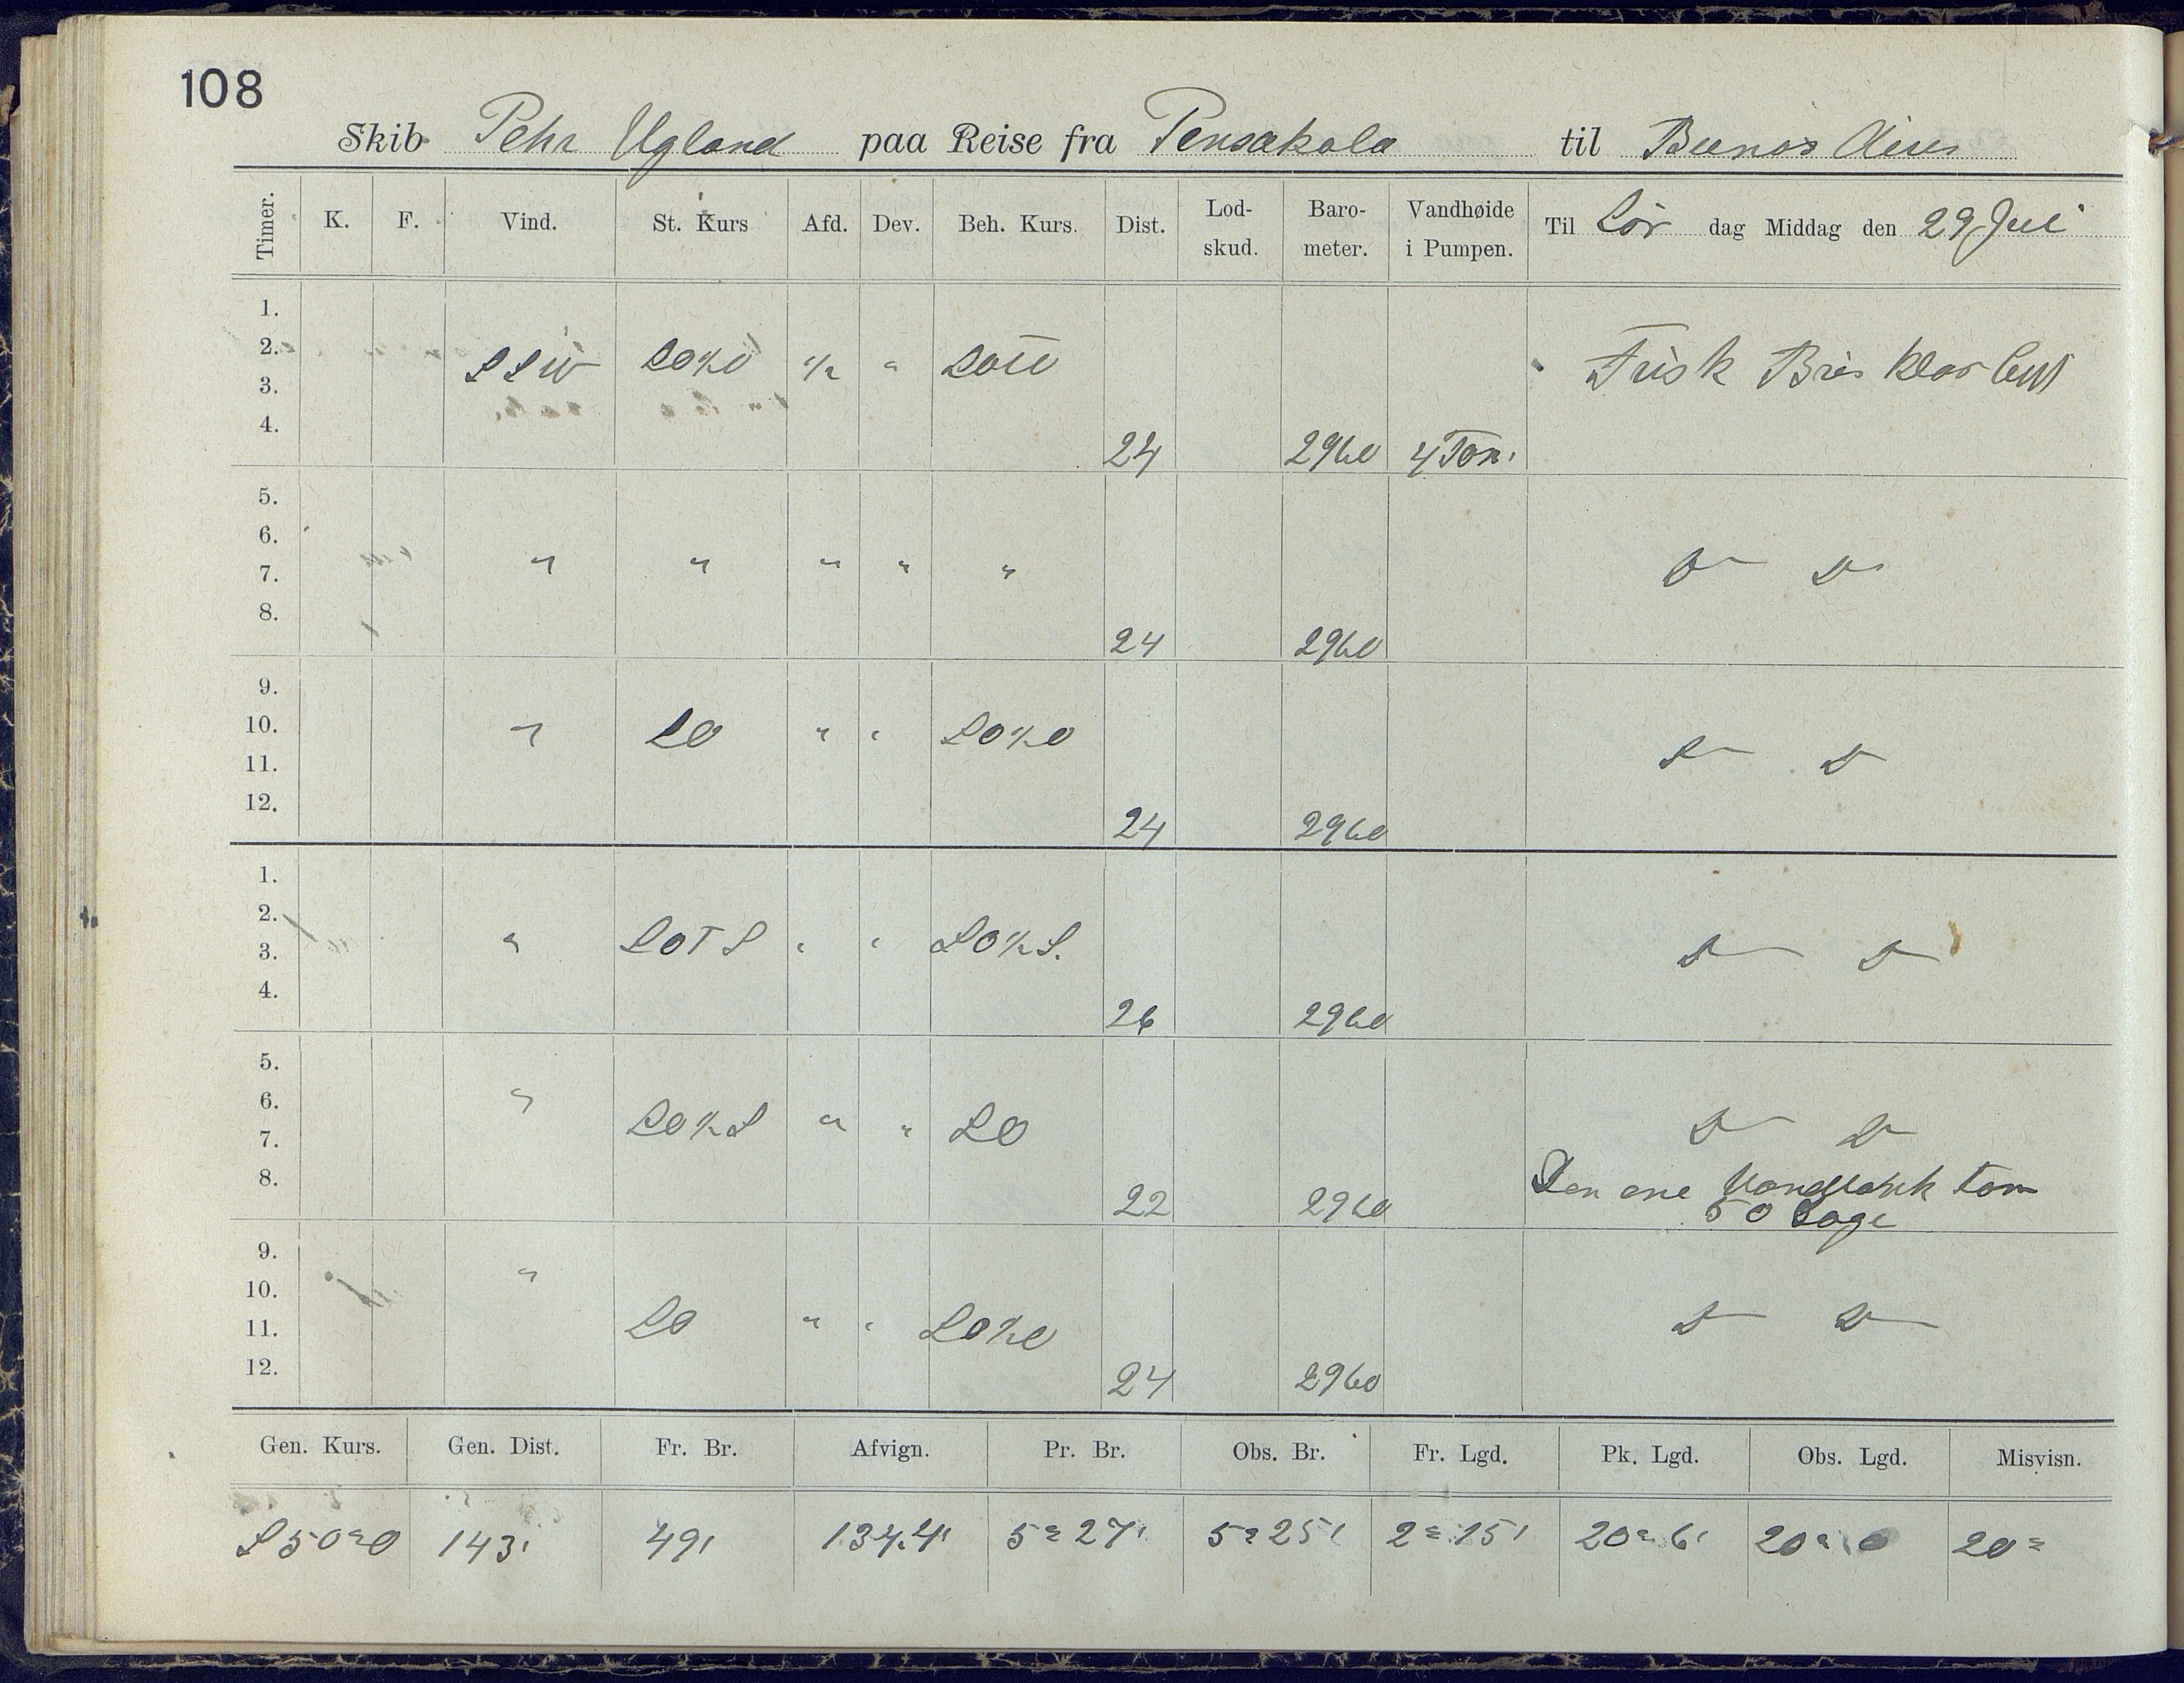 108
Skib Pehr Ugland paa Reise fra Pensakola til Buenos Aires
Timer. K. F. Vind. St. Kurs Afd. Dev. Beh. Kurs. Dist. Lod-skud. Baro-meter. Vandhøide i Pumpen. Til Lör dag Middag den 29 Juli
1.
2. SSW SO½O ½ " SOTO Frisk Bris klar luft
3.
4. 24 2960 4 Tom.
5.
6.
7. " " " " " D D
8. 24 2960
9.
10. " SO " " SO½O
11. D D
12. 24 2960
1.
2.
3. " SOTS " " SO½S. D D
4. 26 2960
5.
6. "
7. SO½S " " SO D D
8. 22 2960 Den ene Vandtank tom
50 Dage
9.
10. "
11. SO " " SO½O D D
12. 24 2960
Gen. Kurs. Gen. Dist. Fr. Br. Afvign. Pr. Br. Obs. Br. Fr. Lgd. Pk. Lgd. Obs. Lgd. Misvisn.
S50°O 143' 49' 134.4' 5° 27' 5° 25' 2° 15' 20° 6' 20° 0 20°